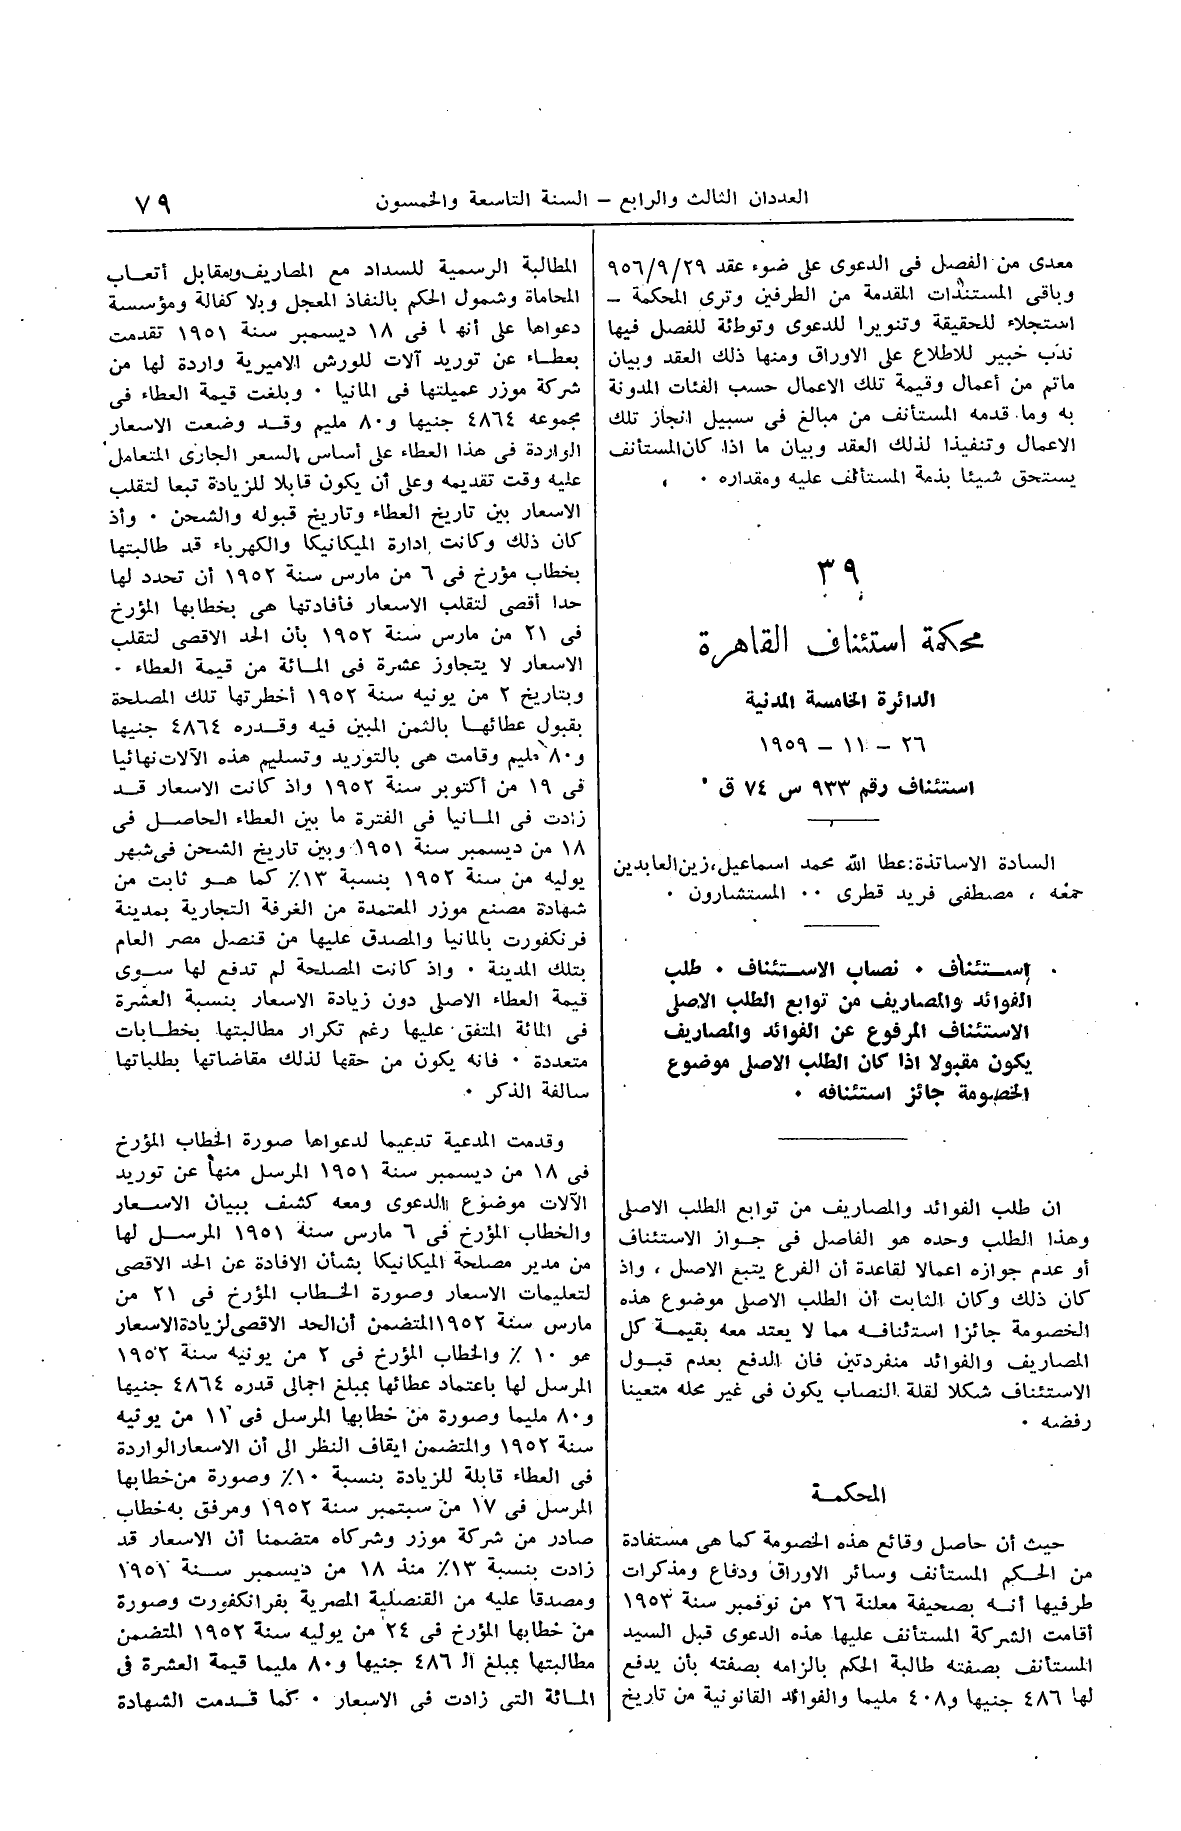 العددان الثالث والرابع – السنة التاسعة والخمسون
٧٩
معدى من الفصل فى الدعوى على ضوء عقد ٩٥٦/٩/٢٩
وباقى المستندات المقدمة من الطرفين وترى المحكمة –
استجلاء للحقيقة وتنويرا للدعوى وتوطئة للفصل فيها
ندب خبير للاطلاع على الاوراق ومنها ذلك العقد وبيان
ماتم من أعمال وقيمة تلك الاعمال حسب الفئات المدونة
به وما قدمه المستأنف من مبالغ فى سبيل انجاز تلك
الاعمال وتنفيذا لذلك العقد وبيان ما اذا كان المستأنف
يستحق شيئا بذمة المستأنف عليه ومقداره ٠
٣٩
محكمة استئناف القاهرة
الدائرة الخامسة المدنية
٢٦ – ١١ – ١٩٥٩
استئناف رقم ٩٣٣ س ٧٤ ق ٠
السادة الاساتذة: عطا الله محمد اسماعيل، زين العابدين
جمعه ، مصطفى فريد قطرى ٠٠ المستشارون ٠
إستئناف ٠ نصاب الاستئناف ٠ طلب
الفوائد والمصاريف من توابع الطلب الاصلى
الاستئناف المرفوع عن الفوائد والمصاريف
يكون مقبولا اذا كان الطلب الاصلى موضوع
الخصومة جائز استئنافه ٠
ان طلب الفوائد والمصاريف من توابع الطلب الاصلى
وهذا الطلب وحده هو الفاصل فى جواز الاستئناف
أو عدم جوازه اعمالا لقاعدة أن الفرع يتبع الاصل ، واذ
كان ذلك وكان الثابت أن الطلب الاصلى موضوع هذه
الخصومة جائزا استئنافه مما لا يعتد معه بقيمة كل
المصاريف والفوائد منفردتين فان الدفع بعدم قبول
الاستئناف شكلا لقلة النصاب يكون فى غير محله متعينا
رفضه ٠
المحكمة
حيث أن حاصل وقائع هذه الخصومة كما هى مستفادة
من الحكم المستأنف وسائر الاوراق ودفاع ومذكرات
طرفيها أنه بصحيفة معلنة ٢٦ من نوفمبر سنة ١٩٥٣
أقامت الشركة المستأنف عليها هذه الدعوى قبل السيد
المستأنف بصفته طالبة الحكم بالزامه بصفته بأن يدفع
لها ٤٨٦ جنيها و٤٠٨ مليما والفوائد القانونية من تاريخ
المطالبة الرسمية للسداد مع المصاريف ومقابل أتعاب
المحاماة وشمول الحكم بالنفاذ المعجل وبلا كفالة ومؤسسة
دعواها على أنها فى ١٨ ديسمبر سنة ١٩٥١ تقدمت
بعطاء عن توريد آلات للورش الاميرية واردة لها من
شركة موزر عميلتها فى المانيا ٠ وبلغت قيمة العطاء فى
مجموعه ٤٨٦٤ جنيها و٨٠ مليم وقد وضعت الاسعار
الواردة فى هذا العطاء على أساس السعر الجارى المتعامل
عليه وقت تقديمه وعلى أن يكون قابلا للزيادة تبعا لتقلب
الاسعار بين تاريخ العطاء وتاريخ قبوله والشحن ٠ وأذ
كان ذلك وكانت إدارة الميكانيكا والكهرباء قد طالبتها
بخطاب مؤرخ فى ٦ من مارس سنة ١٩٥٢ أن تحدد لها
حدا أقصى لتقلب الاسعار فأفادتها هى بخطابها المؤرخ
فى ٢١ من مارس سنة ١٩٥٢ بأن الحد الاقصى لتقلب
الاسعار لا يتجاوز عشرة فى المائة من قيمة العطاء ٠
وبتاريخ ٢ من يونيه سنة ١٩٥٢ أخطرتها تلك المصلحة
بقبول عطائها بالثمن المبين فيه وقدره ٤٨٦٤ جنيها
و٨٠ مليم وقامت هى بالتوريد وتسليم هذه الآلات نهائيا
فى ١٩ من أكتوبر سنة ١٩٥٢ واذ كانت الاسعار قد
زادت فى المانيا فى الفترة ما بين العطاء الحاصل فى
١٨ من ديسمبر سنة ١٩٥١ وبين تاريخ الشحن فى شهر
يوليه من سنة ١٩٥٢ بنسبة ١٣٪ كما هو ثابت من
شهادة مصنع موزر المعتمدة من الغرفة التجارية بمدينة
فرنكفورت بالمانيا والمصدق عليها من قنصل مصر العام
بتلك المدينة ٠ واذ كانت المصلحة لم تدفع لها سوى
قيمة العطاء الاصلى دون زيادة الاسعار بنسبة العشرة
فى المائة المتفق عليها رغم تكرار مطالبتها بخطابات
متعددة ٠ فانه يكون من حقها لذلك مقاضاتها بطلباتها
سالفة الذكر ٠
وقدمت المدعية تدعيما لدعواها صورة الخطاب المؤرخ
فى ١٨ من ديسمبر سنة ١٩٥١ المرسل منها عن توريد
الآلات موضوع الدعوى ومعه كشف ببيان الاسعار
والخطاب المؤرخ فى ٦ مارس سنة ١٩٥١ المرسل لها
من مدير مصلحة الميكانيكا بشأن الافادة عن الحد الاقصى
لتعليمات الاسعار وصورة الخطاب المؤرخ فى ٢١ من
مارس سنة ١٩٥٢ المتضمن أن الحد الاقصى لزيادة الاسعار
هو ١٠ ٪ والخطاب المؤرخ فى ٢ من يونيه سنة ١٩٥٢
المرسل لها باعتماد عطائها بمبلغ اجمالى قدره ٤٨٦٤ جنيها
و٨٠ مليما وصورة من خطابها المرسل فى ١١ من يونيه
سنة ١٩٥٢ والمتضمن ايقاف النظر الى أن الاسعار الواردة
فى العطاء قابلة للزيادة بنسبة ١٠٪ وصورة من خطابها
المرسل فى ١٧ من سبتمبر سنة ١٩٥٢ ومرفق به خطاب
صادر من شركة موزر وشركاه متضمنا أن الاسعار قد
زادت بنسبة ١٣٪ منذ ١٨ من ديسمبر سنة ١٩٥١
ومصدقا عليه من القنصلية المصرية بفرانكفورت وصورة
من خطابها المؤرخ فى ٢٤ من يوليه سنة ١٩٥٢ المتضمن
مطالبتها بمبلغ الـ ٤٨٦ جنيها و٨٠ مليما قيمة العشرة فى
المائة التى زادت فى الاسعار ٠ كما قدمت الشهادة